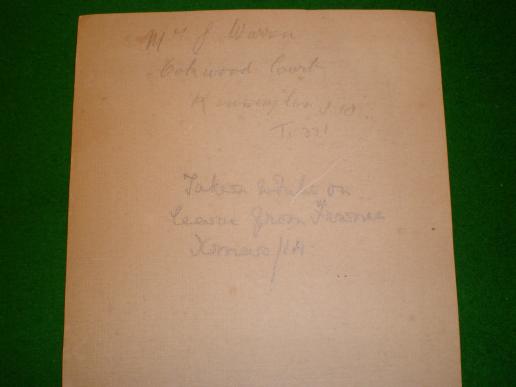 Mrs J Warren
Oakwood Court
Kensington S.W.
Taken while on
leave from France
Xmas/14